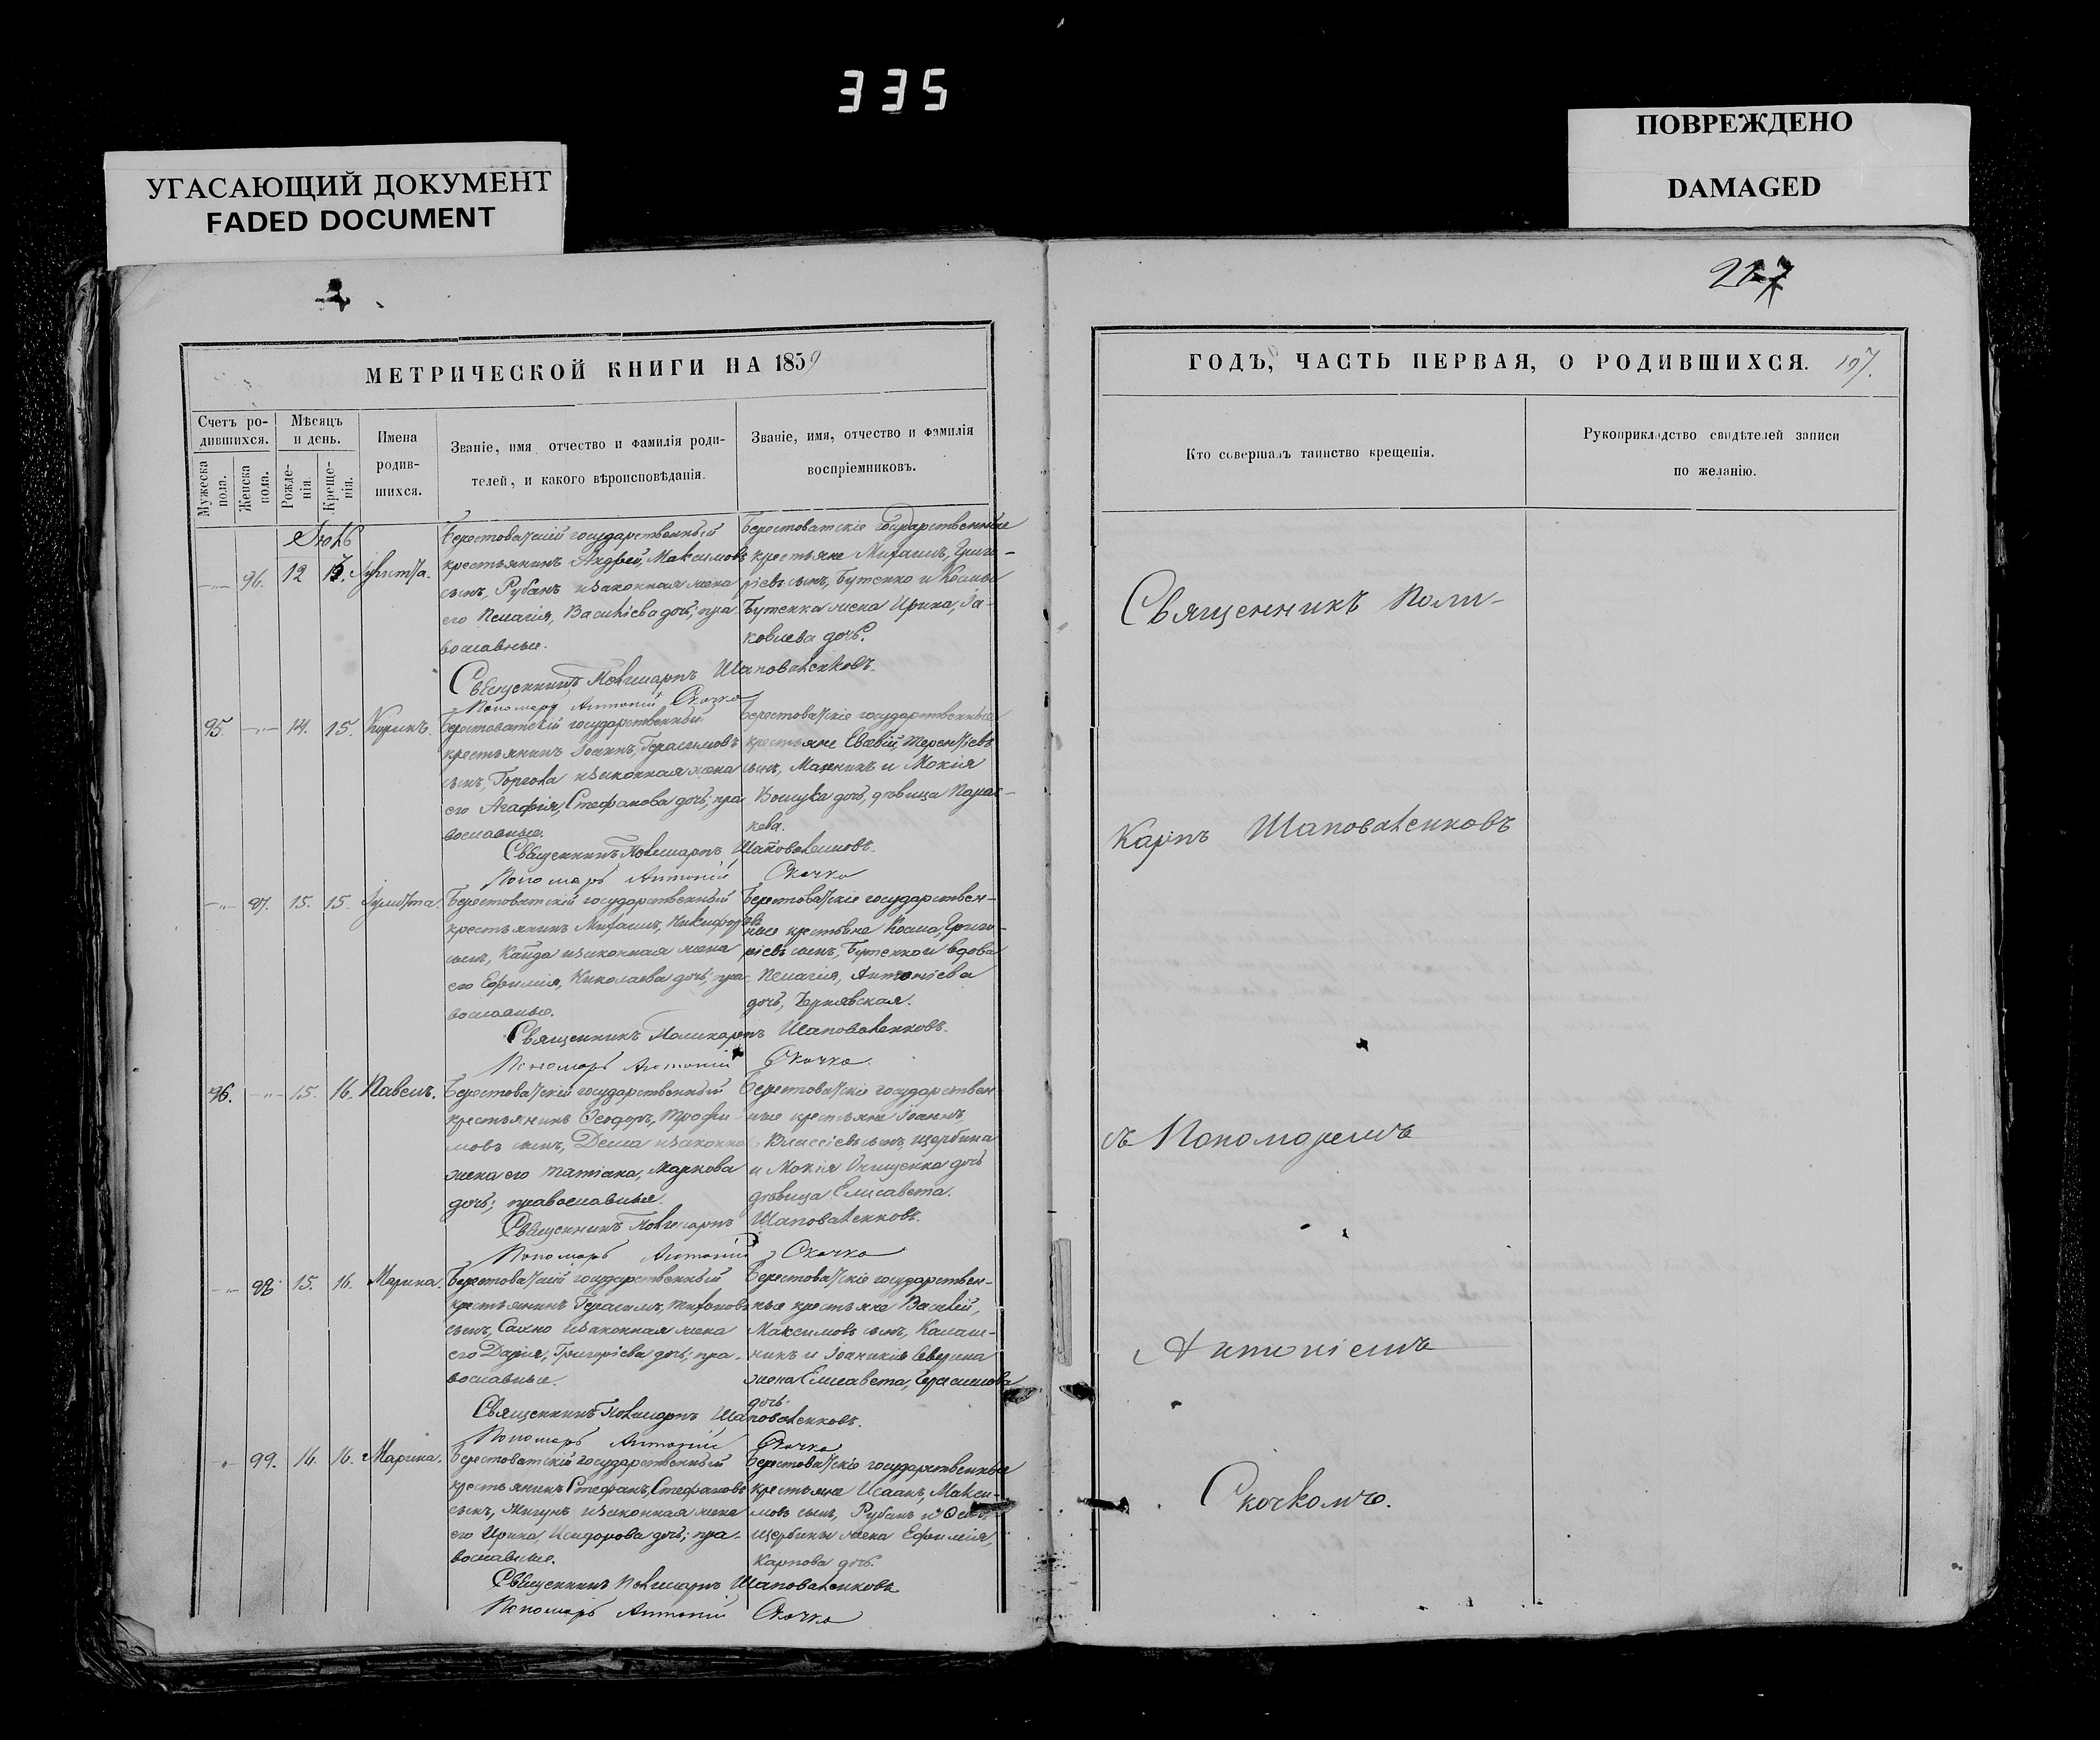 335
УГАСАЮЩИЙ ДОКУМЕНТ
FADED DOCUMENT
ПОВРЕЖДЕНО
DAMAGED
217
МЕТРИЧЕСКОЙ КНИГИ НА 1859
Счетъ ро-
дившихся.
Мужеска пола.
Женска пола.
Мѣсяцъ
и день.
Рожде-
нія.
Креще-
нія.
Имена
родив-
шихся.
Званіе, имя отчество и фамилія роди-
телей, и какого вѣроисповѣданія.
Званіе, имя, отчество и фамилія
воспріемниковъ.
96. 12 13. Іулитта.
Берестоватскій государственный
крестьянинъ Андрей, Максимовъ
сынъ, Рубанъ и законная жена
его Пелагія, Василіева дочь; пра-
вославные.
Берестоватскіе государственные
крестьяне Михаилъ, Григо-
ріевъ сынъ, Бутенко и Космы
Бутенка жена Ирина, Іа-
ковлева дочь.
Священникъ Поликарпъ Шаповаленковъ.
Пономарь Антоній Скочко
95. 14. 15. Кирикъ.
Берестоватскій государственный
крестьянинъ Іоаннъ, Герасимовъ
сынъ, и законная жена
его Агафія, Стефанова дочь; пра-
вославные.
Берестоватскіе государственные
крестьяне Терентіевъ
сынъ, и Мокія
дочь, дѣвица Парас-
кева.
Священникъ Поликарпъ Шаповаленковъ.
Пономарь Антоній Скочко
97. 15. 15. Іулитта.
Берестоватскій государственный
крестьянинъ Михаилъ, Никифоровъ
сынъ, Кайда и законная жена
его Ефимія, Николаева дочь; пра-
вославные.
Берестоватскіе государствен-
ные крестьяне Косма, Григо-
ріевъ сынъ, Бутенко и вдова
Пелагія, Антоніева
дочь, Чернявская.
Священникъ Поликарпъ Шаповаленковъ.
Пономарь Антоній Скочко.
96. 15. 16. Павелъ.
Берестоватскій государственный
крестьянинъ Ѳеодоръ, Трофи-
мовъ сынъ, и законная
жена его Татіана, Маркова
дочь; православные.
Берестоватскіе государствен-
ные крестьяне Іоаннъ,
Власіевъ сынъ, Щербина
и Мокія Онищенка дочь
дѣвица Елисавета.
Священникъ Поликарпъ Шаповаленковъ.
Пономарь Антоній Скочко
98. 15. 16. Марина.
Берестоватскій государственный
крестьянинъ Герасимъ, Тихоновъ
сынъ, Сахно и законная жена
его Дарія, Григоріева дочь; пра-
вославные.
Берестоватскіе государствен-
ные крестьяне Василій,
Максимовъ сынъ, Калаш-
никъ и Іоанникія
жена Елисавета, Герасимова
дочь.
Священникъ Поликарпъ Шаповаленковъ.
Пономарь Антоній Скочко
99. 16. 16. Марина.
Берестоватскій государственный
крестьянинъ Стефанъ, Стефановъ
сынъ, и законная жена
его Ирина, Исидорова дочь; пра-
вославные.
Берестоватскіе государственные
крестьяне Исаакъ, Макси-
мовъ сынъ, Рубанъ и
Щербины жена Ефимія,
Карпова дочь.
Священникъ Поликарпъ Шаповаленковъ
Пономарь Антоній Скочко
ГОДЪ, ЧАСТЬ ПЕРВАЯ, О РОДИВШИХСЯ. 197.
Кто совершалъ таинство крещенія.
Рукоприкладство свидѣтелей записи
по желанію.
Священникъ Поли-
карпъ Шаповаленковъ
съ Пономаремъ
Антоніемъ
Скочкомъ.